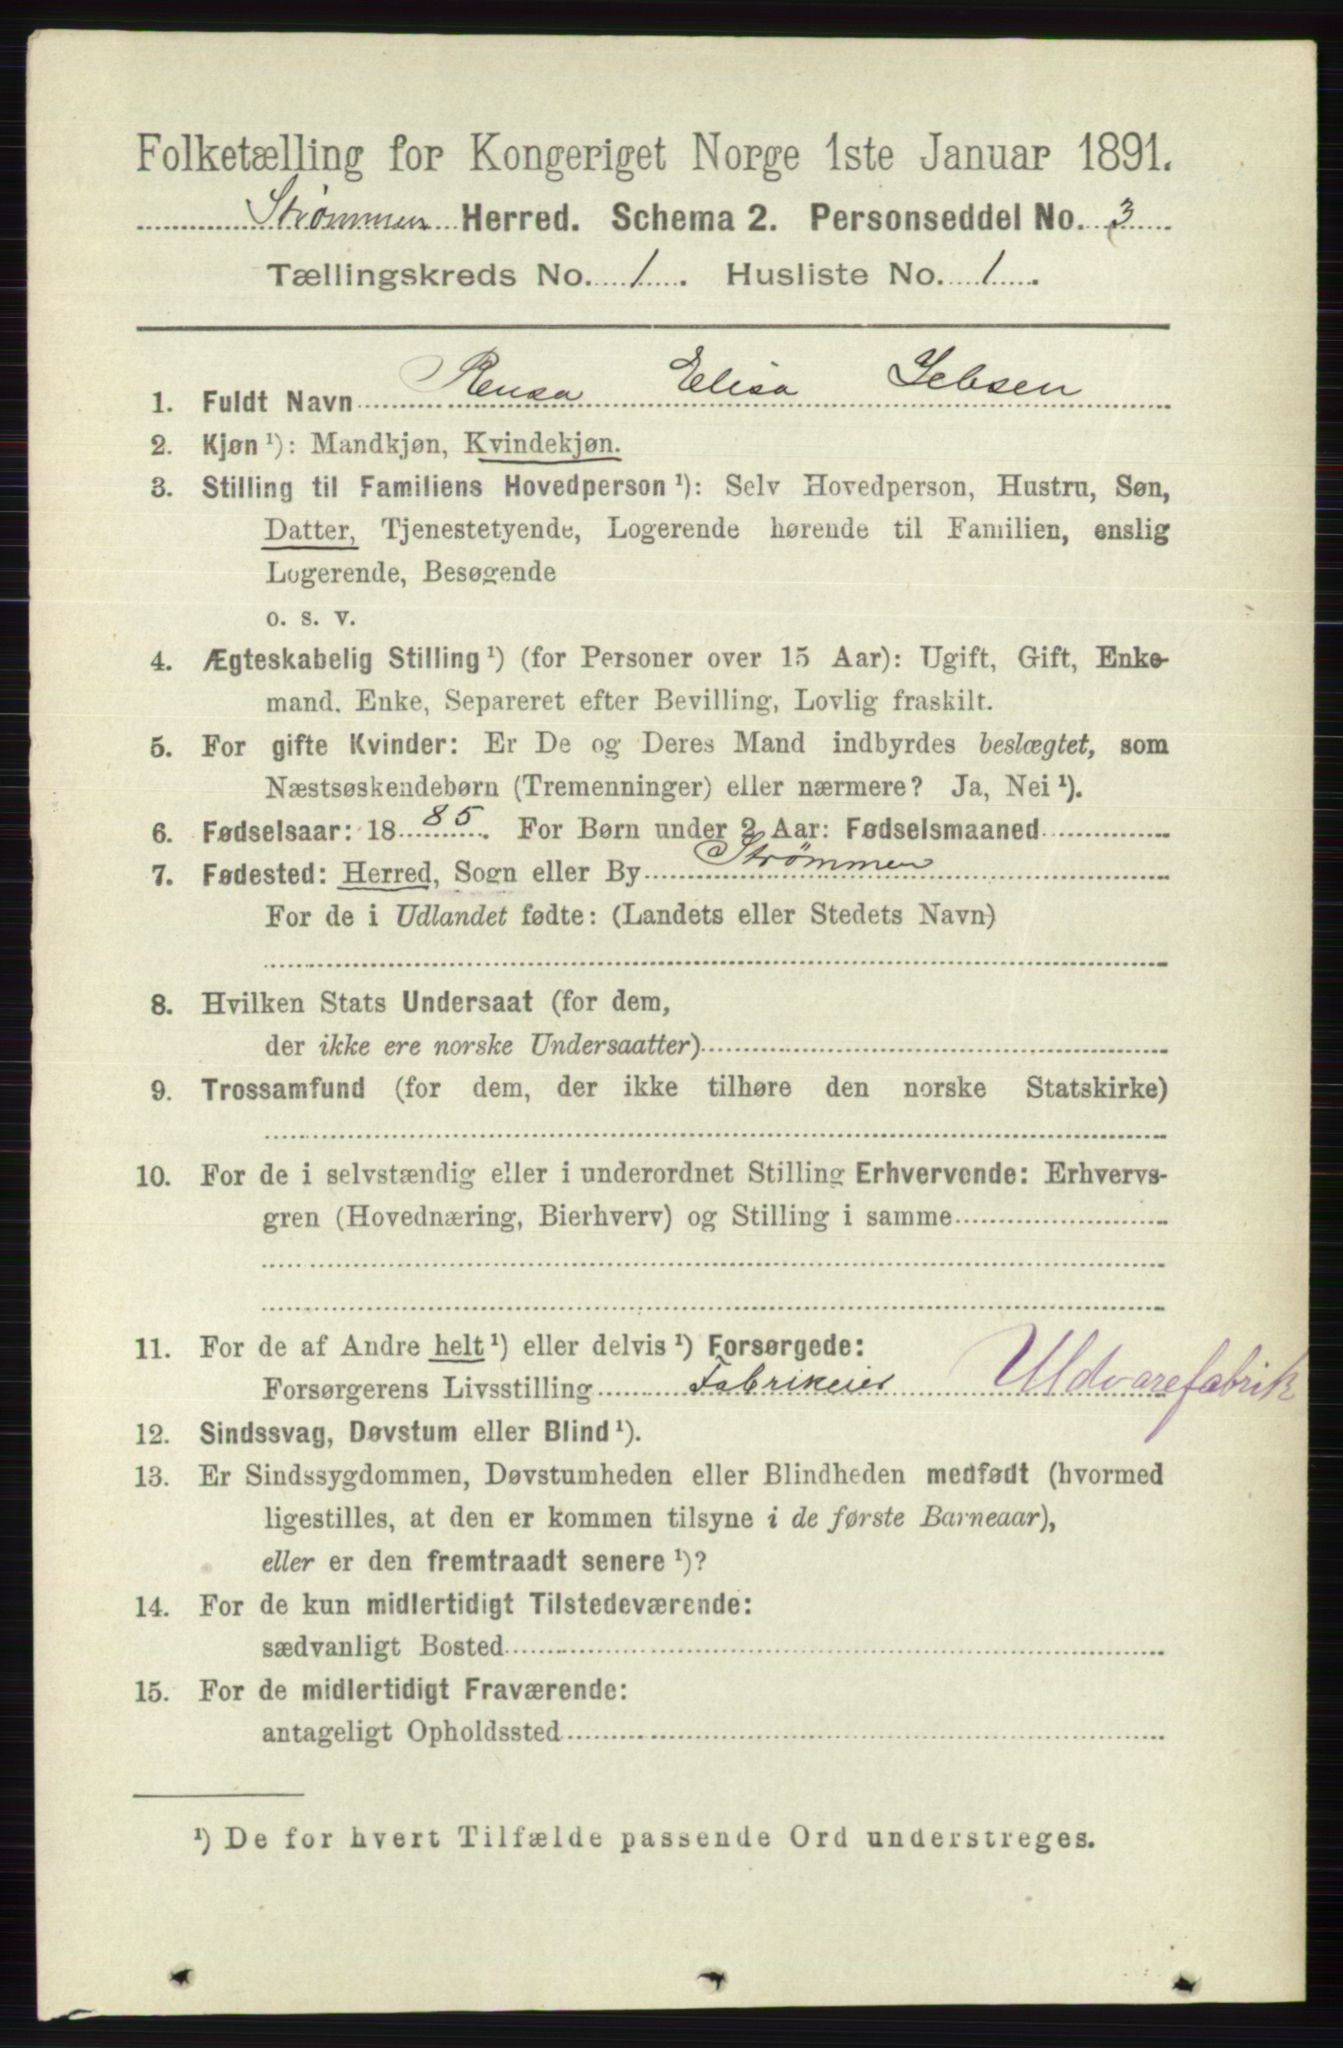 Folketælling for Kongeriget Norge 1ste Januar 1891.
Strømmen Herred. Schema 2. Personseddel No. 3
Tællingskreds No. 1. Husliste No. 1.
1. Fuldt Navn Elisa Jebsen
2. Kjøn ¹): Mandkjøn, Kvindekjøn.
3. Stilling til Familiens Hovedperson ¹): Selv Hovedperson, Hustru, Søn,
Datter, Tjenestetyende, Logerende hørende til Familien, enslig
Logerende, Besøgende
o. s. v.
4. Ægteskabelig Stilling ¹) (for Personer over 15 Aar): Ugift, Gift, Enke-
mand, Enke, Separeret efter Bevilling, Lovlig fraskilt.
5. For gifte Kvinder: Er De og Deres Mand indbyrdes beslægtet, som
Næstsøskendebørn (Tremenninger) eller nærmere? Ja, Nei ¹).
6. Fødselsaar: 1885. For Børn under 2 Aar: Fødselsmaaned
7. Fødested: Herred, Sogn eller By Strømmen
For de i Udlandet fødte: (Landets eller Stedets Navn)
8. Hvilken Stats Undersaat (for dem,
der ikke ere norske Undersaatter)
9. Trossamfund (for dem, der ikke tilhøre den norske Statskirke)
10. For de i selvstændig eller i underordnet Stilling Erhvervende: Erhvervs-
gren (Hovednæring, Bierhverv) og Stilling i samme
11. For de af Andre helt ¹) eller delvis ¹) Forsørgede:
Forsørgerens Livsstilling Fabrikeier Uldvarefabrik
12. Sindssvag, Døvstum eller Blind ¹).
13. Er Sindssygdommen, Døvstumheden eller Blindheden medfødt (hvormed
ligestilles, at den er kommen tilsyne i de første Barneaar),
eller er den fremtraadt senere ¹)?
14. For de kun midlertidigt Tilstedeværende:
sædvanligt Bosted
15. For de midlertidigt Fraværende:
antageligt Opholdssted
¹) De for hvert Tilfælde passende Ord understreges.